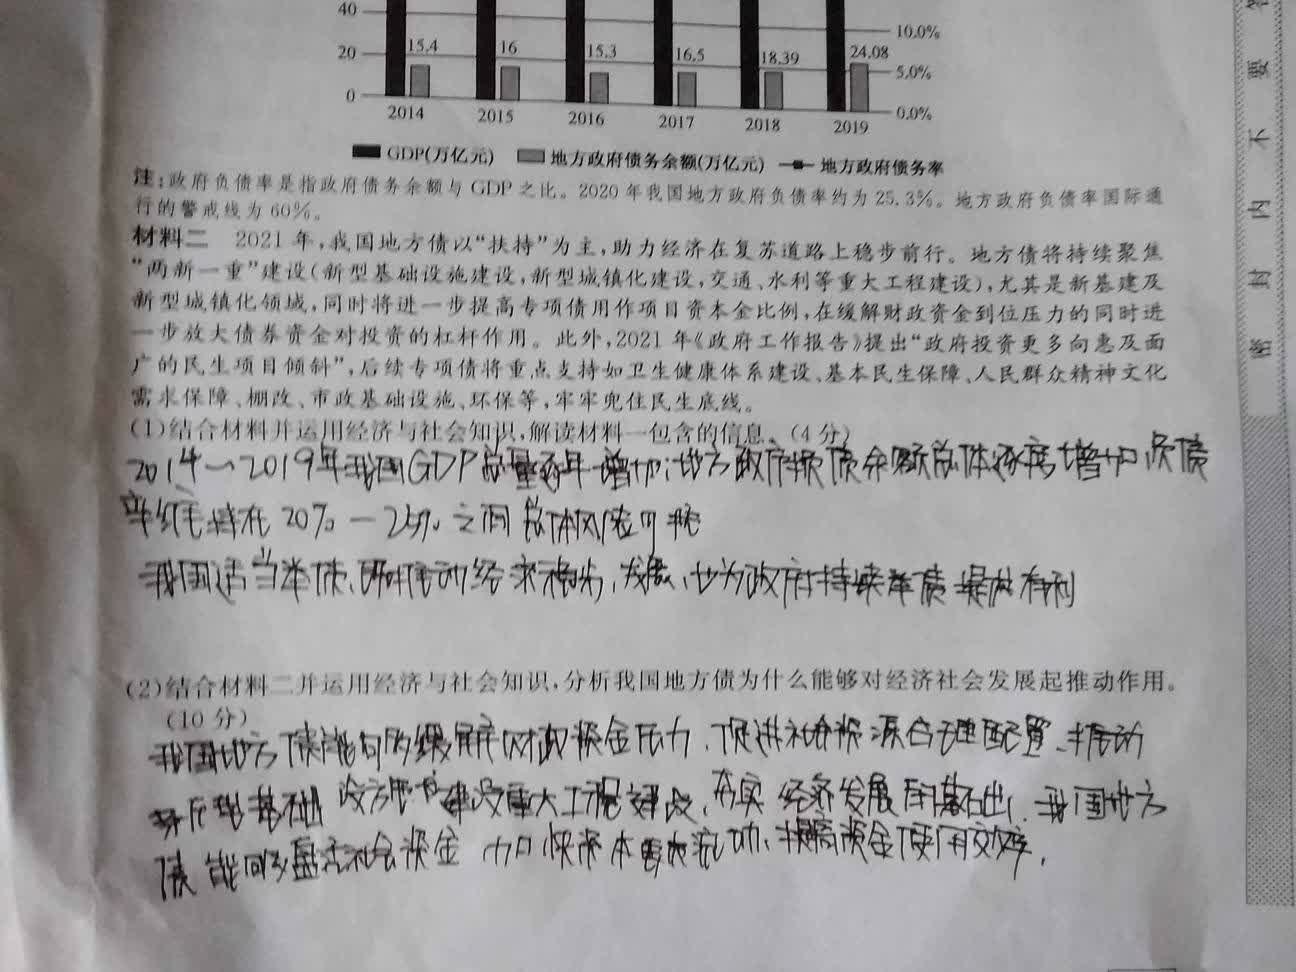 40
10.0%
20
15.4 16 15.3 16.5 18.39 24.08
5.0%
0
0.0%
2014 2015 2016 2017 2018 2019
GDP(万亿元) 地方政府债务余额(万亿元) 地方政府债务率
注:政府负债率是指政府债务余额与 GDP 之比。2020年我国地方政府负债率约为25.3%。地方政府负债率国际通
行的警戒线为60%。
材料二 2021年,我国地方债以“扶持”为主,助力经济在复苏道路上稳步前行。地方债将持续聚焦
“两新一重”建设(新型基础设施建设,新型城镇化建设,交通、水利等重大工程建设),尤其是新基建及
新型城镇化领域,同时将进一步提高专项债用作项目资本金比例,在缓解财政资金到位压力的同时进
一步放大债券资金对投资的杠杆作用。此外,2021年《政府工作报告》提出“政府投资更多向惠及面
广的民生项目倾斜”,后续专项债将重点支持如卫生健康体系建设、基本民生保障、人民群众精神文化
需求保障、棚改、市政基础设施、环保等,牢牢兜住民生底线。
(1)结合材料并运用经济与社会知识,解读材料一包含的信息。(4分)
2014—2019年我国GDP总量逐年增加;地方政府债余额总体逐年增加负债
率维持在20%—25%之间总体风险可控
我国适当举债,既推动经济稳步发展,也为政府持续举债提供有利
(2)结合材料二并运用经济与社会知识,分析我国地方债为什么能够对经济社会发展起推动作用。
(10分)
我国地方债能够缓解财政资金压力,促进社会资源合理配置、推动
新型基础设施建设重大工程建设,夯实经济发展的基础,我国地方
债能够盈活社会资金加快资本流动,提高资金使用效率,
不 要
内
封
密